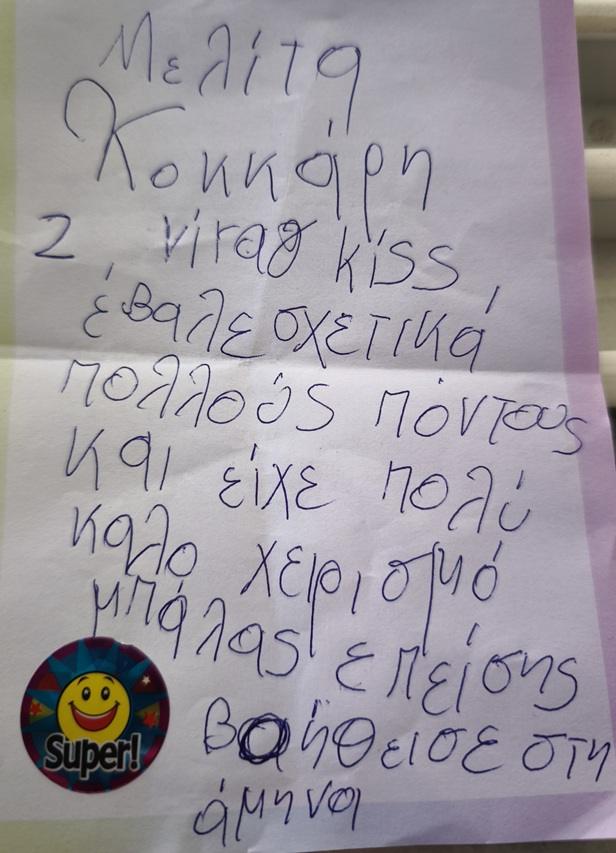 Μελίτα
Κοκκάρη
2, νίταθ kiss,
έβαλε σχετικά
πολλούς πόντους
και είχε πολύ
καλο χειρισμό
μπάλας επείσης
Βοήθεισε στη
άμηνα
Super!